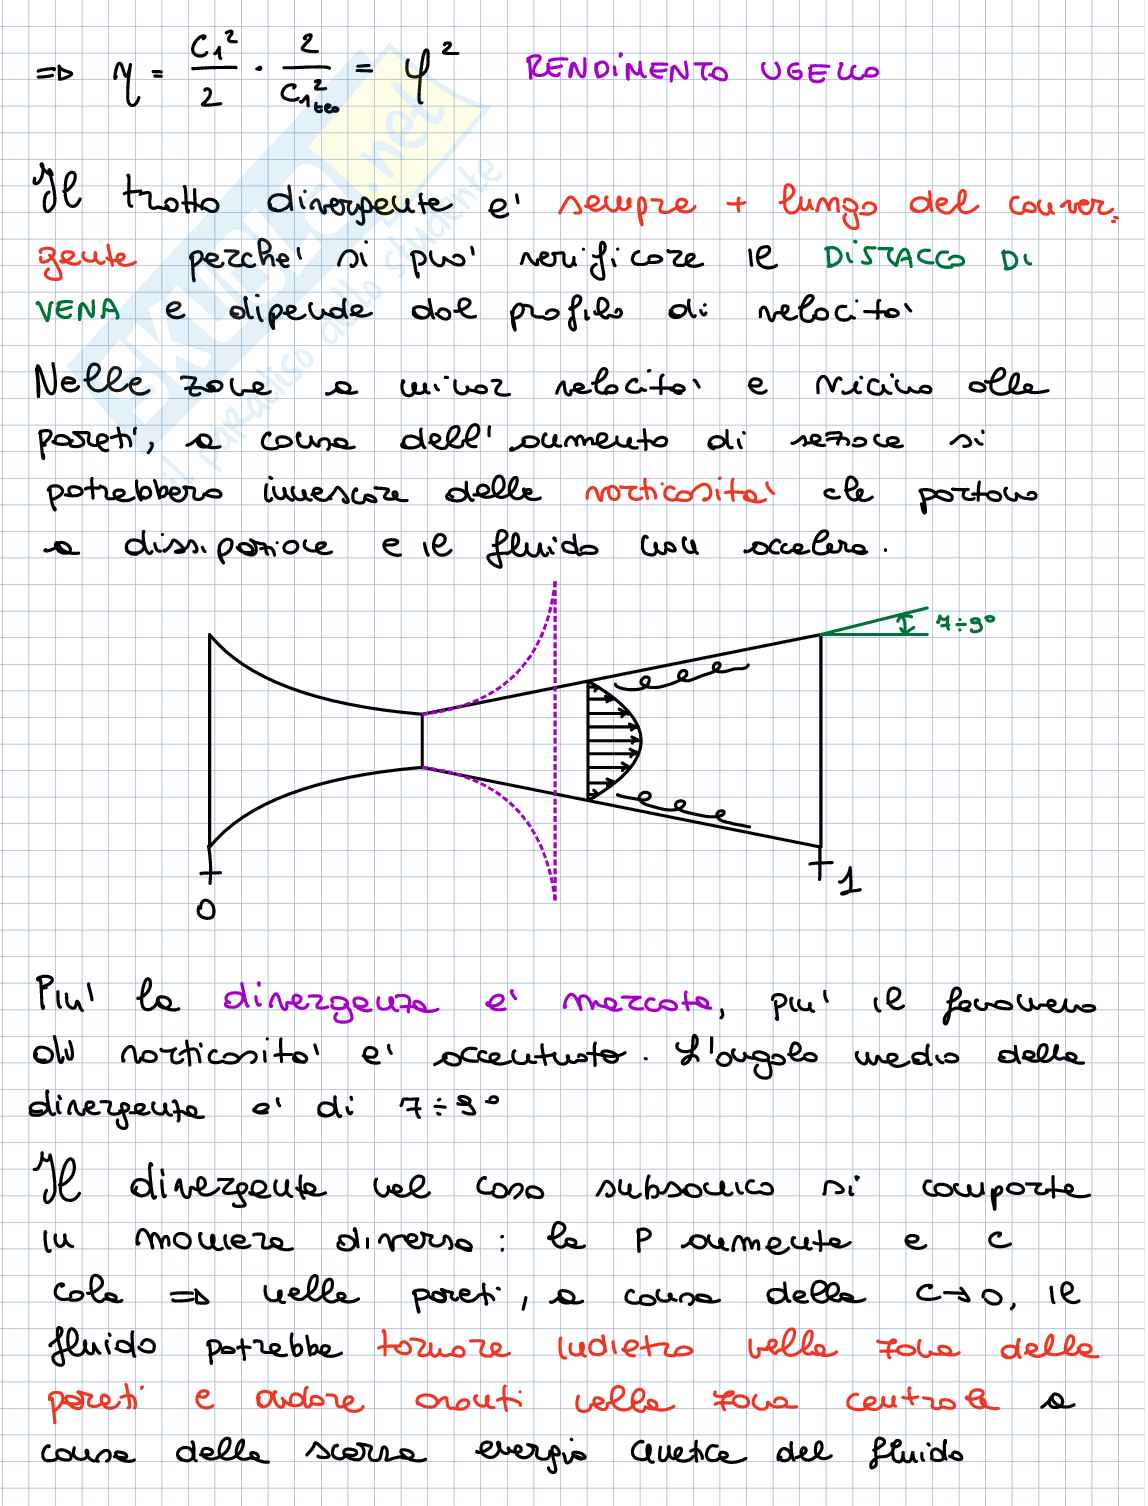 ⇒ η = C₁²/2 · 2/C₁ₜₑₒ² = φ² RENDIMENTO UGELLO
Il tratto divergente e' sempre + lungo del conver-
gente perche' si puo' verificare il DISTACCO DI
VENA e dipende dal profilo di velocita'
Nelle zone a minor velocita' e vicino alle
pareti, a causa dell'aumento di sezione si
potrebbero innescare delle vorticosita' che portano
a dissipazione e il fluido non accelera.
7÷9°
0
1
Piu' la divergenza e' marcata, piu' il fenomeno
di vorticosita' e' accentuato. L'angolo medio della
divergente e' di 7÷9°
Il divergente nel caso subsonico si comporta
in maniera diversa: la P aumenta e c
cala ⇒ nelle pareti, a causa della c→0, il
fluido potrebbe tornare indietro nella zona delle
pareti e andare avanti nella zona centrale a
causa della scarsa energia cinetica del fluido
SKUOLA.net
il paradiso dello studente